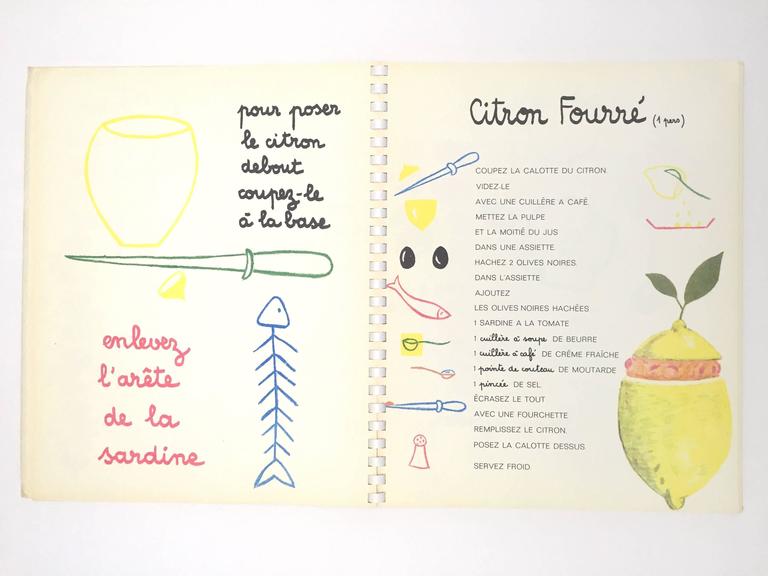 pour poser
le citron
debout
coupez-le
à la base
enlevez
l'arête
de la
sardine
Citron Fourré (1 pers)
COUPEZ LA CALOTTE DU CITRON.
VIDEZ-LE
AVEC UNE CUILLÈRE A CAFÉ.
METTEZ LA PULPE
ET LA MOITIÉ DU JUS
DANS UNE ASSIETTE.
HACHEZ 2 OLIVES NOIRES.
DANS L'ASSIETTE
AJOUTEZ
LES OLIVES NOIRES HACHÉES
1 SARDINE A LA TOMATE
1 cuillère à soupe DE BEURRE
1 cuillère à café DE CRÈME FRAÎCHE
1 pointe de couteau DE MOUTARDE
1 pincée DE SEL.
ÉCRASEZ LE TOUT
AVEC UNE FOURCHETTE.
REMPLISSEZ LE CITRON.
POSEZ LA CALOTTE DESSUS.
SERVEZ FROID.